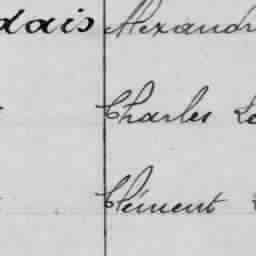 dais Alexandr
Charles Le
Clément